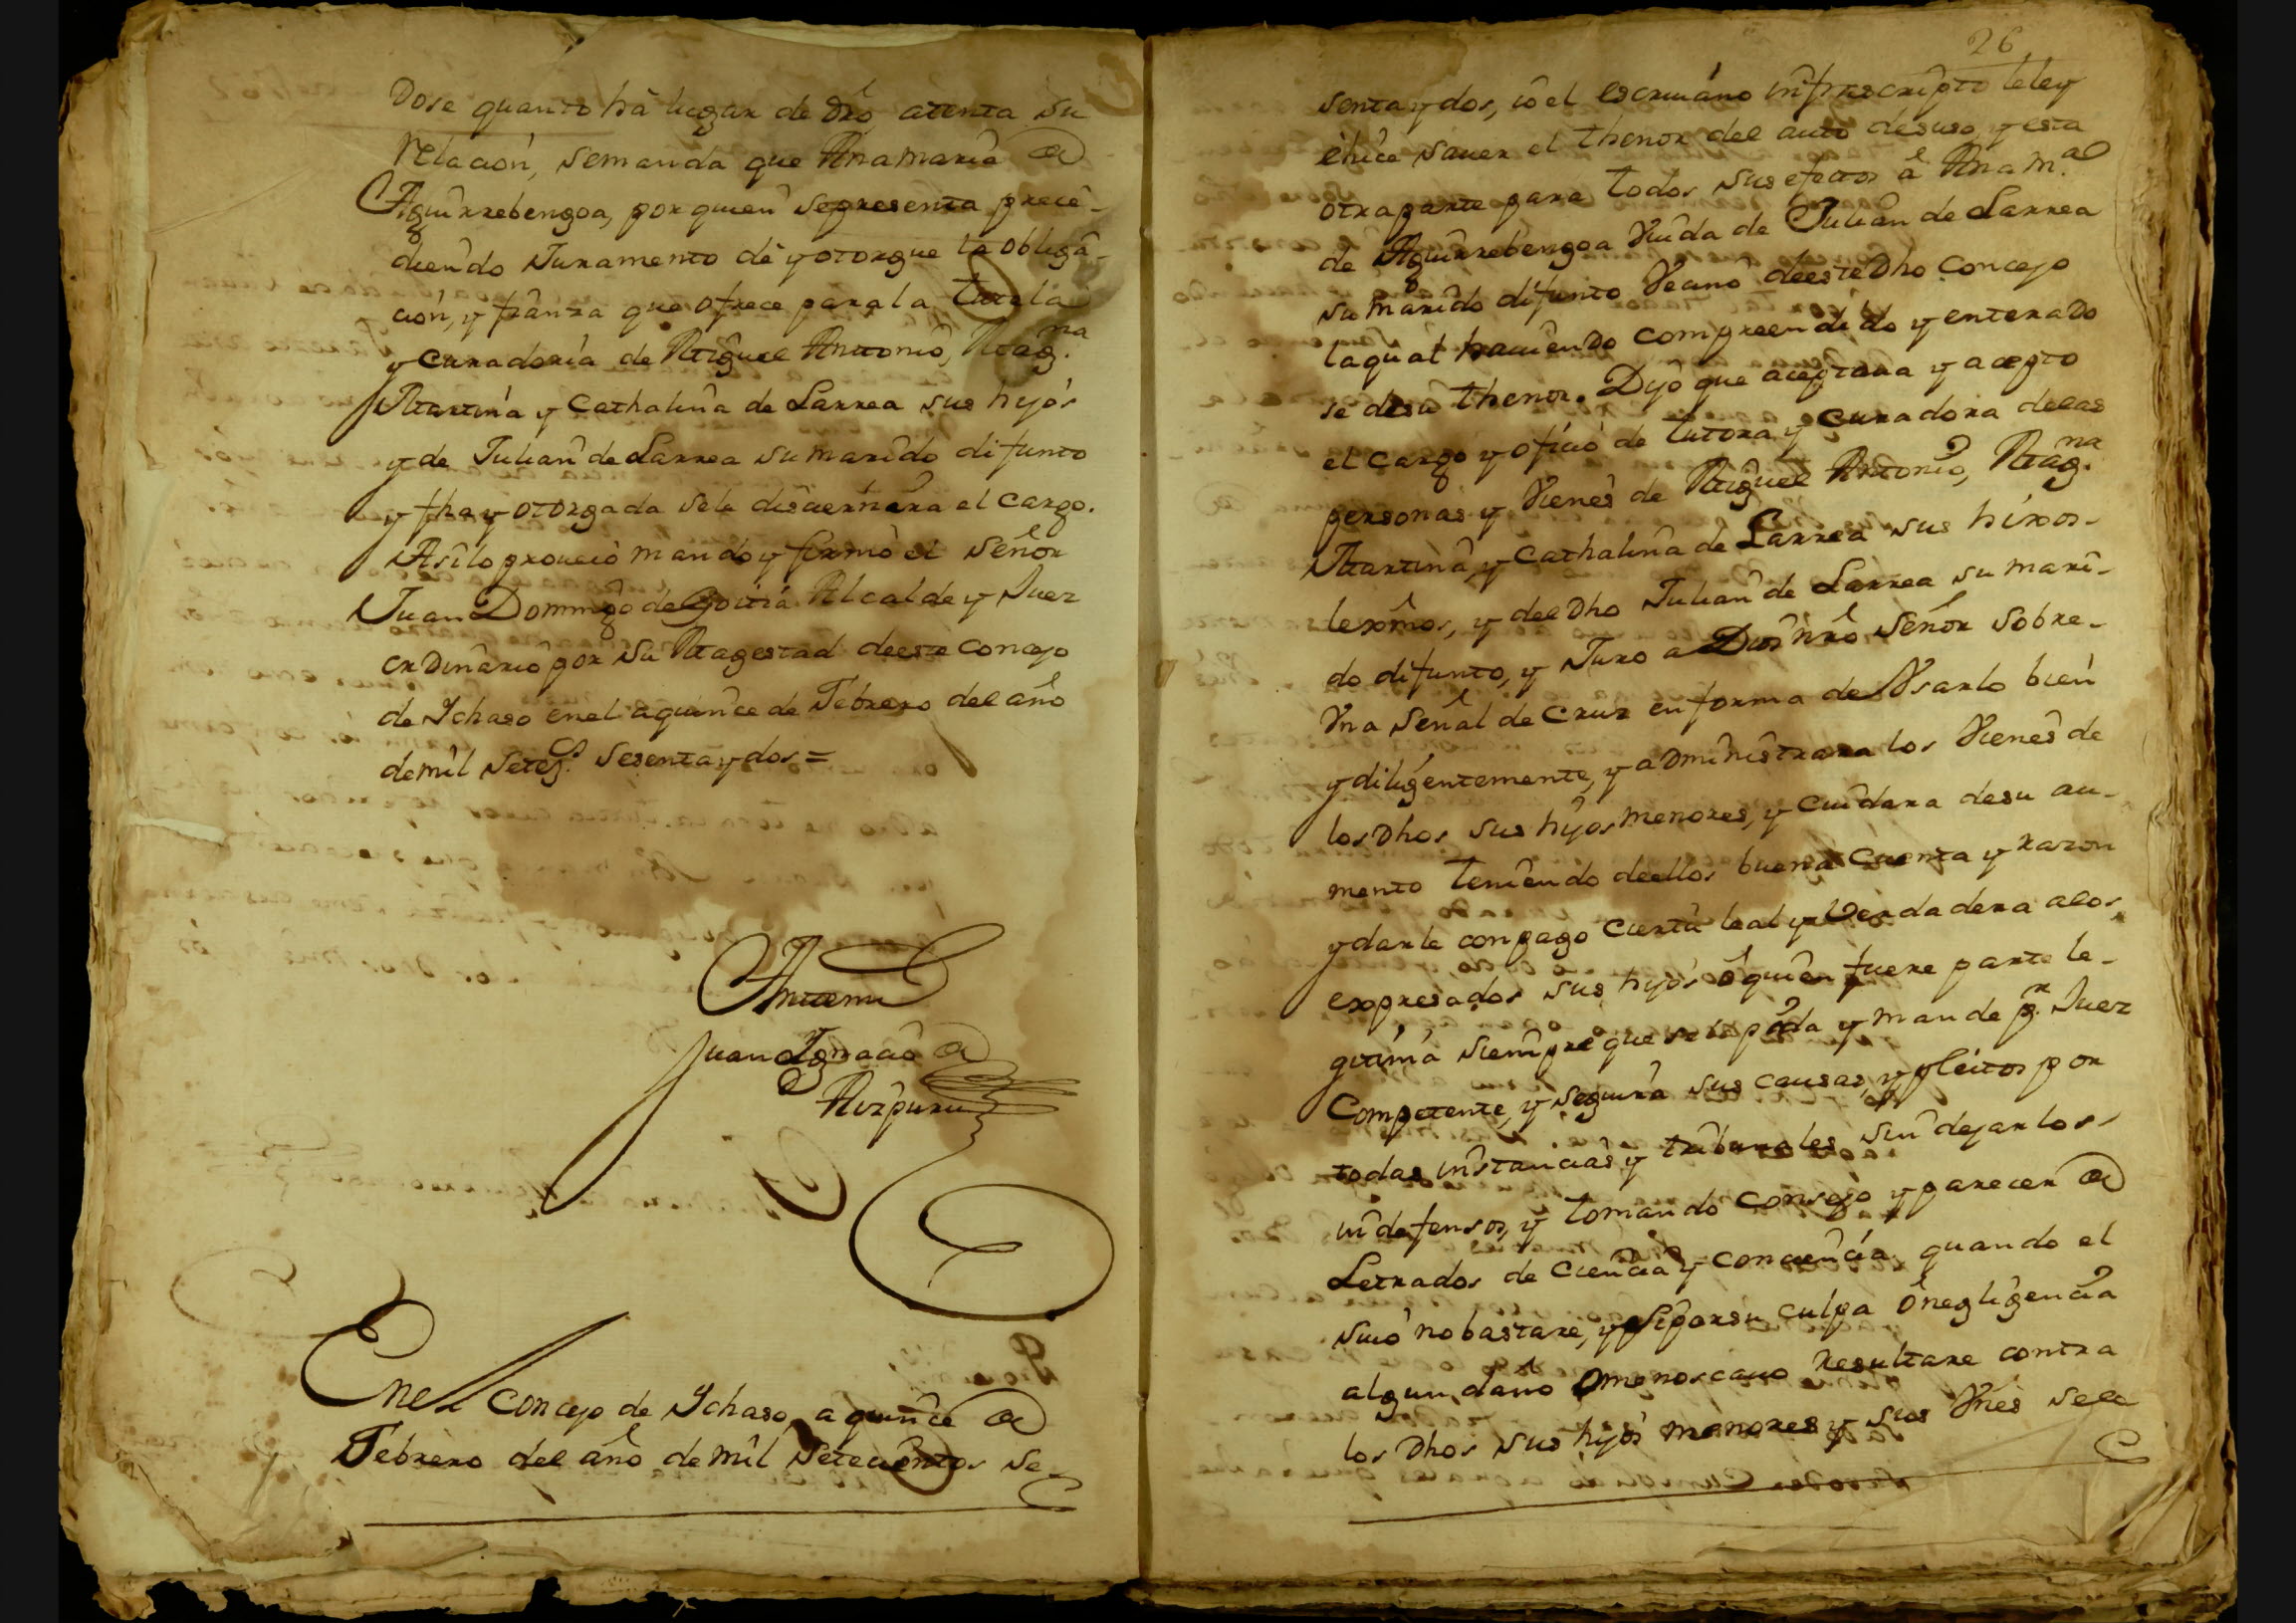 Dose quanto hà lugar de dro atenta su
relación, semanda que Anamaria de
Aguirrebengoa, por quien sepresenta prece-
diendo Juramento dè y otorgue la obliga-
ción, y fianza que ofrece para la tutela
y curadoría de Miguel Antonio, Mag.na
Martina y Cathalina de Larrea sus hijos
y de Julian de Larrea su marido difunto
y fha y otorgada sele discernira el cargo.
Asilo proveiò mando y firmò el Señor
Juan Domingo de Goitia Alcalde y Juez
ordinario por su Magestad deeste concejo
de Ichaso enel aquince de Febrero del año
de mil Setez.s sesenta y dos =
Antemi
Juan Ignacio de
Aizpuru
Enel concejo de Ichaso a quince de
Febrero del año de mil setecientos se-
26
senta y dos, io el escriuano infrascripto leley
èhice sauer el thenor del auto desuso, y esta
otraparte para todos sus efectos â Ana M.a
de Aguirrebengoa Viuda de Julian de Larrea
su marido difunto Vecino deeste Dho concejo
laqual hauiendo compreendido y enterado
se desu thenor. Dijo que aceptaua y acepto
el cargo y oficio de tutora y curadora delas
personas y Vienes de Miguel Antonio, Mag.na
Martina, y Cathalina de Larrea sus hixos
lexmos, y del Dho Julian de Larrea su mari-
do difunto, y Juro a Dios nro Señor sobre
Vna señal de Cruz en forma de Vsarlo bien
y diligentemente, y administrara los Vienes de
los Dhos sus hijos menores, y cuidara desu au-
mento teniendo deellos buena cuenta y razon
y darla conpago cierta leal y Verdadera alos
expresados sus hijos ô quien fuere parte le-
gitima siempre que sele pida y mande p.r Juez
Competente, y seguira sus causas, y pleitos por
todas instancias y tribunales sin dejarlos
indefensos, y tomando consejo y parecer de
Letrados de ciencia y conciencia quando el
suio no bastare, y si por su culpa ô negligencia
algun daño ômenoscauo resultare contra
los Dhos sus hijos menores y sus Vnes sela